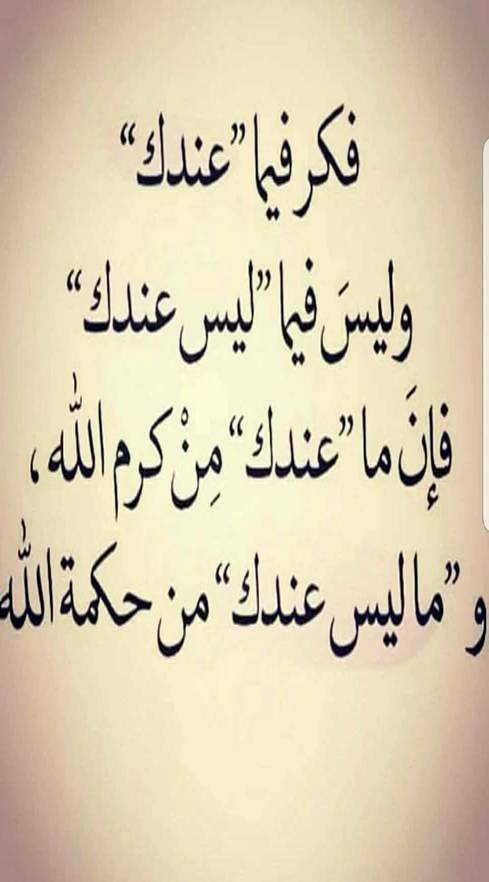 فكر فيما "عندك"
وليسَ فيما "ليس عندك"
فإنَ ما "عندك" مِنْ كرم الله ،
و "ما ليس عندك" من حكمة الله